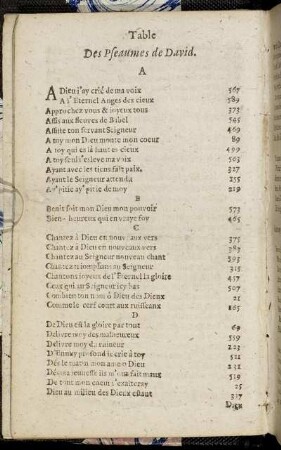 Table
Des Pseaumes de David.
A
A Dieu i'ay crié de ma voix 567
A l'Eternel Anges des cieux 589
Approchez vous & ioyeux tous 373
Assis aux fleuves de Babel 545
Assiste ton servant Seigneur 469
A toy mon Dieu monte mon coeur 89
A toy qui es là haut es cieux 499
A toy seul i'esleve ma voix 503
Ayant avec les tiens fait paix 327
Ayant le Seigneur attendu 255
Ay' pitie ay' pitie de moy 229
B
Benit soit mon Dieu mon pouvoir 573
Bien-heureux qui en vraye foy 465
C
Chantez à Dieu en nouveaux vers 375
Chantez à Dieu en nouveaux vers 382
Chantez au Seigneur nouveau chant 595
Chantez triomphans au Seigneur 315
Chantons ioyeux de l'Eternel la gloire 457
Ceux qui au Seigneur icy bas 507
Combats ton nom ô Dieu des Dieux 21
Comme le cerf court aux ruisseaux 165
D
De Dieu est la gloire par tout 69
Delivre moy des malheureux 559
Delivre moy du ruineur 223
D'un lieu profond ie crie à toy 521
Dés le matin mon ame o Dieu 231
Dés ma ieunesse ils m'ont fait maux 519
De tout mon coeur i'exalteray 25
Dieu au milieu des Dieux estant 317
Dieu